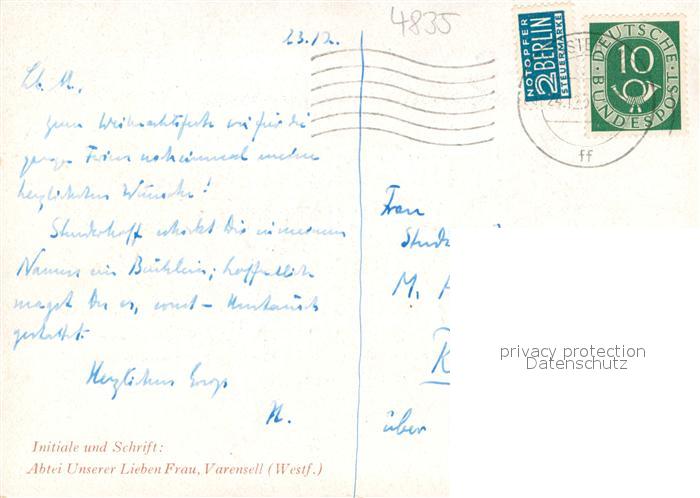 4835
23.12.
NOTOPFER
2 BERLIN
STEUERMARKE
DEUTSCHE
10
BUNDESPOST
24.12
ff
Lb. M.,
zum Weihnachtsfeste wie für die
ganze Ferien noch einmal meine
herzlichsten Wünsche!
Studerhoff schickt Dir in meinem
Namen ein Büchlein; hoffentlich
magst Du es, sonst - Umtausch
gestattet.
Herzlichen Gruß
H.
Frau
M.
über
privacy protection
Datenschutz
Initiale und Schrift:
Abtei Unserer Lieben Frau, Varensell (Westf.)